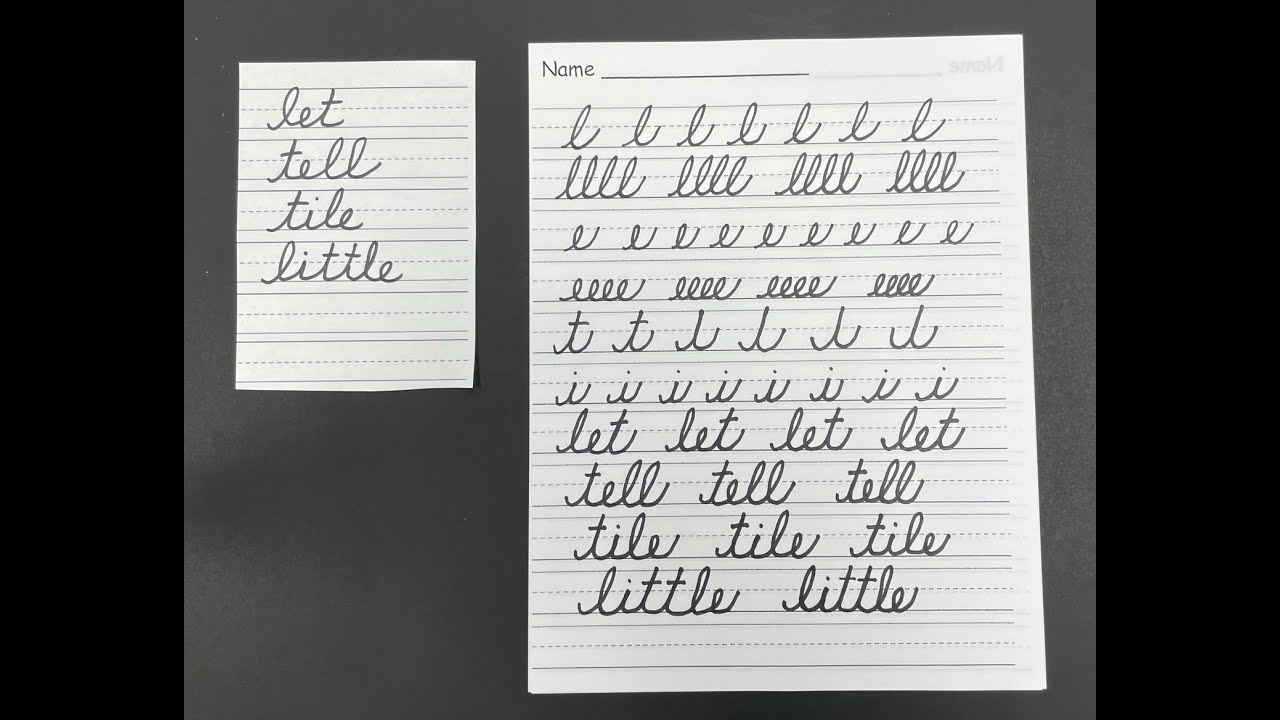 let
tell
tile
little
Name
l l l l l l l
llll llll llll llll
e e e e e e e e e
eeee eeee eeee eeee
t t t t t t
i i i i i i i i
let let let let
tell tell tell
tile tile tile
little little